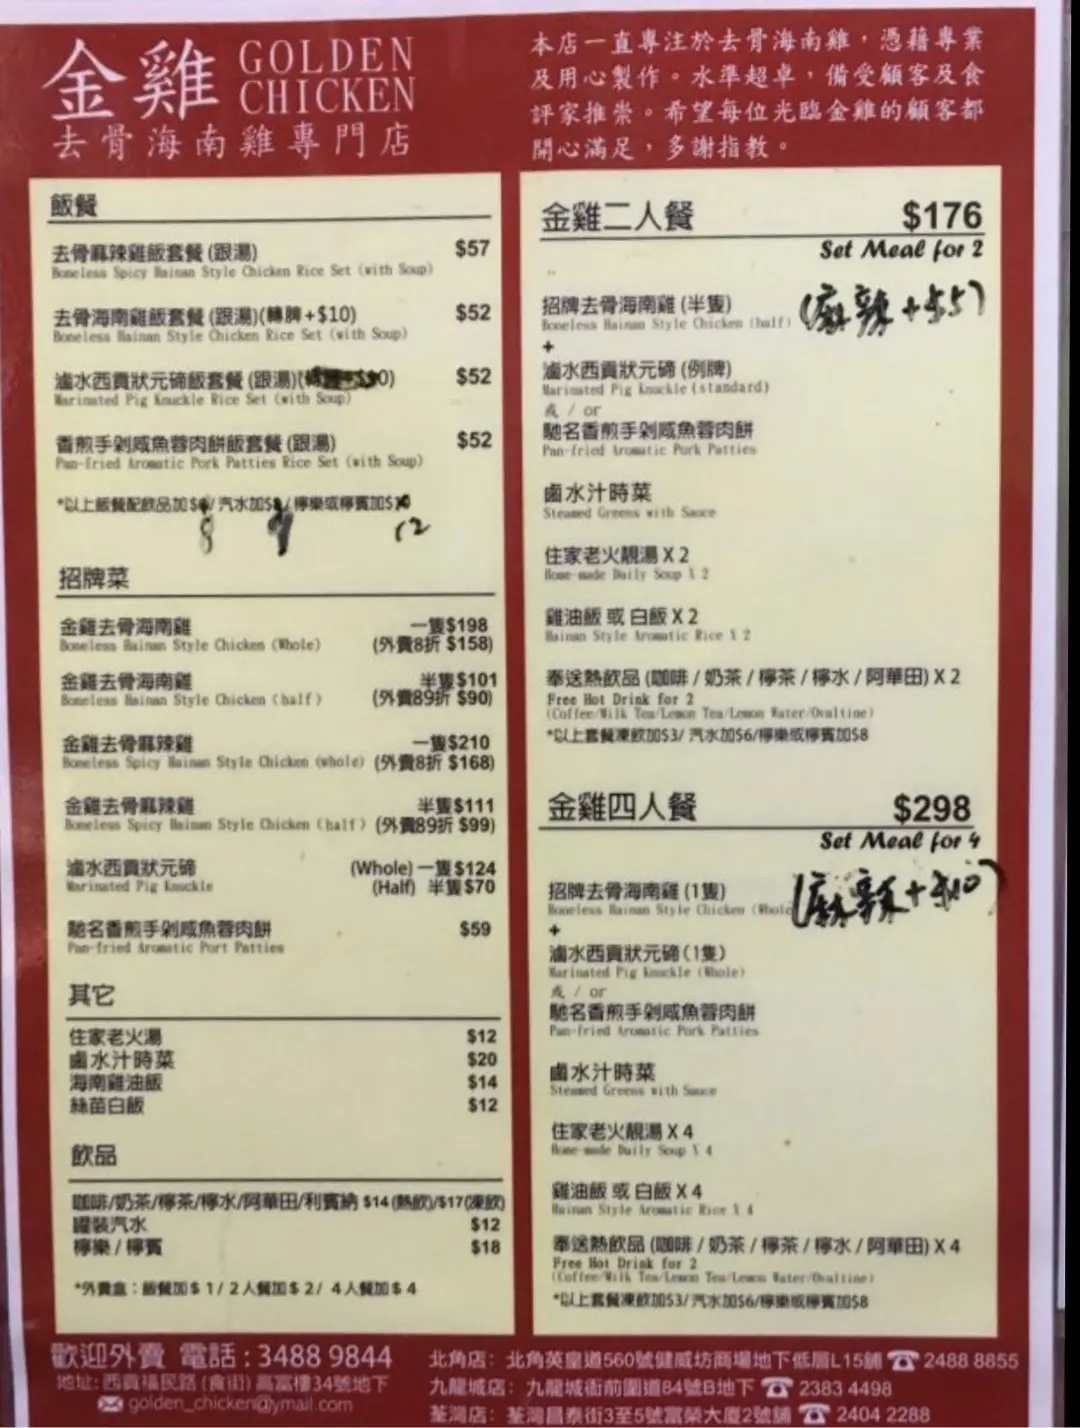 金雞 GOLDEN CHICKEN
去骨海南雞專門店
本店一直專注於去骨海南雞，憑藉專業
及用心製作。水準超卓，備受顧客及食
評家推崇。希望每位光臨金雞的顧客都
開心滿足，多謝指教。
飯餐
去骨麻辣雞飯套餐 (跟湯) $57
Boneless Spicy Hainan Style Chicken Rice Set (with Soup)
去骨海南雞飯套餐 (跟湯)(轉脾+$10) $52
Boneless Hainan Style Chicken Rice Set (with Soup)
滷水西貢狀元碲飯套餐 (跟湯) $52
Marinated Pig Knuckle Rice Set (with Soup)
香煎手剁咸魚蓉肉餅飯套餐 (跟湯) $52
Pan-fried Aromatic Pork Patties Rice Set (with Soup)
*以上飯餐配飲品加$ / 汽水加$ / 檸樂或檸賓加$
8 9 12
招牌菜
金雞去骨海南雞 一隻$198
Boneless Hainan Style Chicken (Whole) (外賣8折 $158)
金雞去骨海南雞 半隻$101
Boneless Hainan Style Chicken (half) (外賣89折 $90)
金雞去骨麻辣雞 一隻$210
Boneless Spicy Hainan Style Chicken (whole) (外賣8折 $168)
金雞去骨麻辣雞 半隻$111
Boneless Spicy Hainan Style Chicken (half) (外賣89折 $99)
滷水西貢狀元碲 (Whole) 一隻$124
Marinated Pig Knuckle (Half) 半隻$70
馳名香煎手剁咸魚蓉肉餅 $59
Pan-fried Aromatic Port Patties
其它
住家老火湯 $12
鹵水汁時菜 $20
海南雞油飯 $14
絲苗白飯 $12
飲品
咖啡/奶茶/檸茶/檸水/阿華田/利賓納 $14(熱飲)/$17(凍飲)
罐裝汽水 $12
檸樂 / 檸賓 $18
*外賣盒：飯餐加 $ 1 / 2 人餐加 $ 2 / 4 人餐加 $ 4
金雞二人餐 $176
Set Meal for 2
招牌去骨海南雞 (半隻) (麻辣+$5)
Boneless Hainan Style Chicken (half)
+
滷水西貢狀元碲 (例牌)
Marinated Pig Knuckle (standard)
或 / or
馳名香煎手剁咸魚蓉肉餅
Pan-fried Aromatic Pork Patties
鹵水汁時菜
Steamed Greens with Sauce
住家老火靚湯 X 2
Home-made Daily Soup X 2
雞油飯 或 白飯 X 2
Hainan Style Aromatic Rice X 2
奉送熱飲品 (咖啡 / 奶茶 / 檸茶 / 檸水 / 阿華田) X 2
Free Hot Drink for 2
(Coffee/Milk Tea/Lemon Tea/Lemon Water/Ovaltine)
*以上套餐凍飲加$3/ 汽水加$6/檸樂或檸賓加$8
金雞四人餐 $298
Set Meal for 4
招牌去骨海南雞 (1隻) (麻辣+$10)
Boneless Hainan Style Chicken (Whole
+
滷水西貢狀元碲 (1隻)
Marinated Pig Knuckle (Whole)
或 / or
馳名香煎手剁咸魚蓉肉餅
Pan-fried Aromatic Pork Patties
鹵水汁時菜
Steamed Greens with Sauce
住家老火靚湯 X 4
Home-made Daily Soup X 4
雞油飯 或 白飯 X 4
Hainan Style Aromatic Rice X 4
奉送熱飲品 (咖啡 / 奶茶 / 檸茶 / 檸水 / 阿華田) X 4
Free Hot Drink for 2
(Coffee/Milk Tea/Lemon Tea/Lemon Water/Ovaltine)
*以上套餐凍飲加$3/ 汽水加$6/檸樂或檸賓加$8
歡迎外賣 電話 : 3488 9844
地址: 西貢福民路 (食街) 高富樓34號地下
golden_chicken@ymail.com
北角店： 北角英皇道560號健威坊商場地下低層L15舖 ☎ 2488 8855
九龍城店： 九龍城衙前圍道84號B地下 ☎ 2383 4498
荃灣店： 荃灣昌泰街3至5號富榮大廈2號舖 ☎ 2404 2288